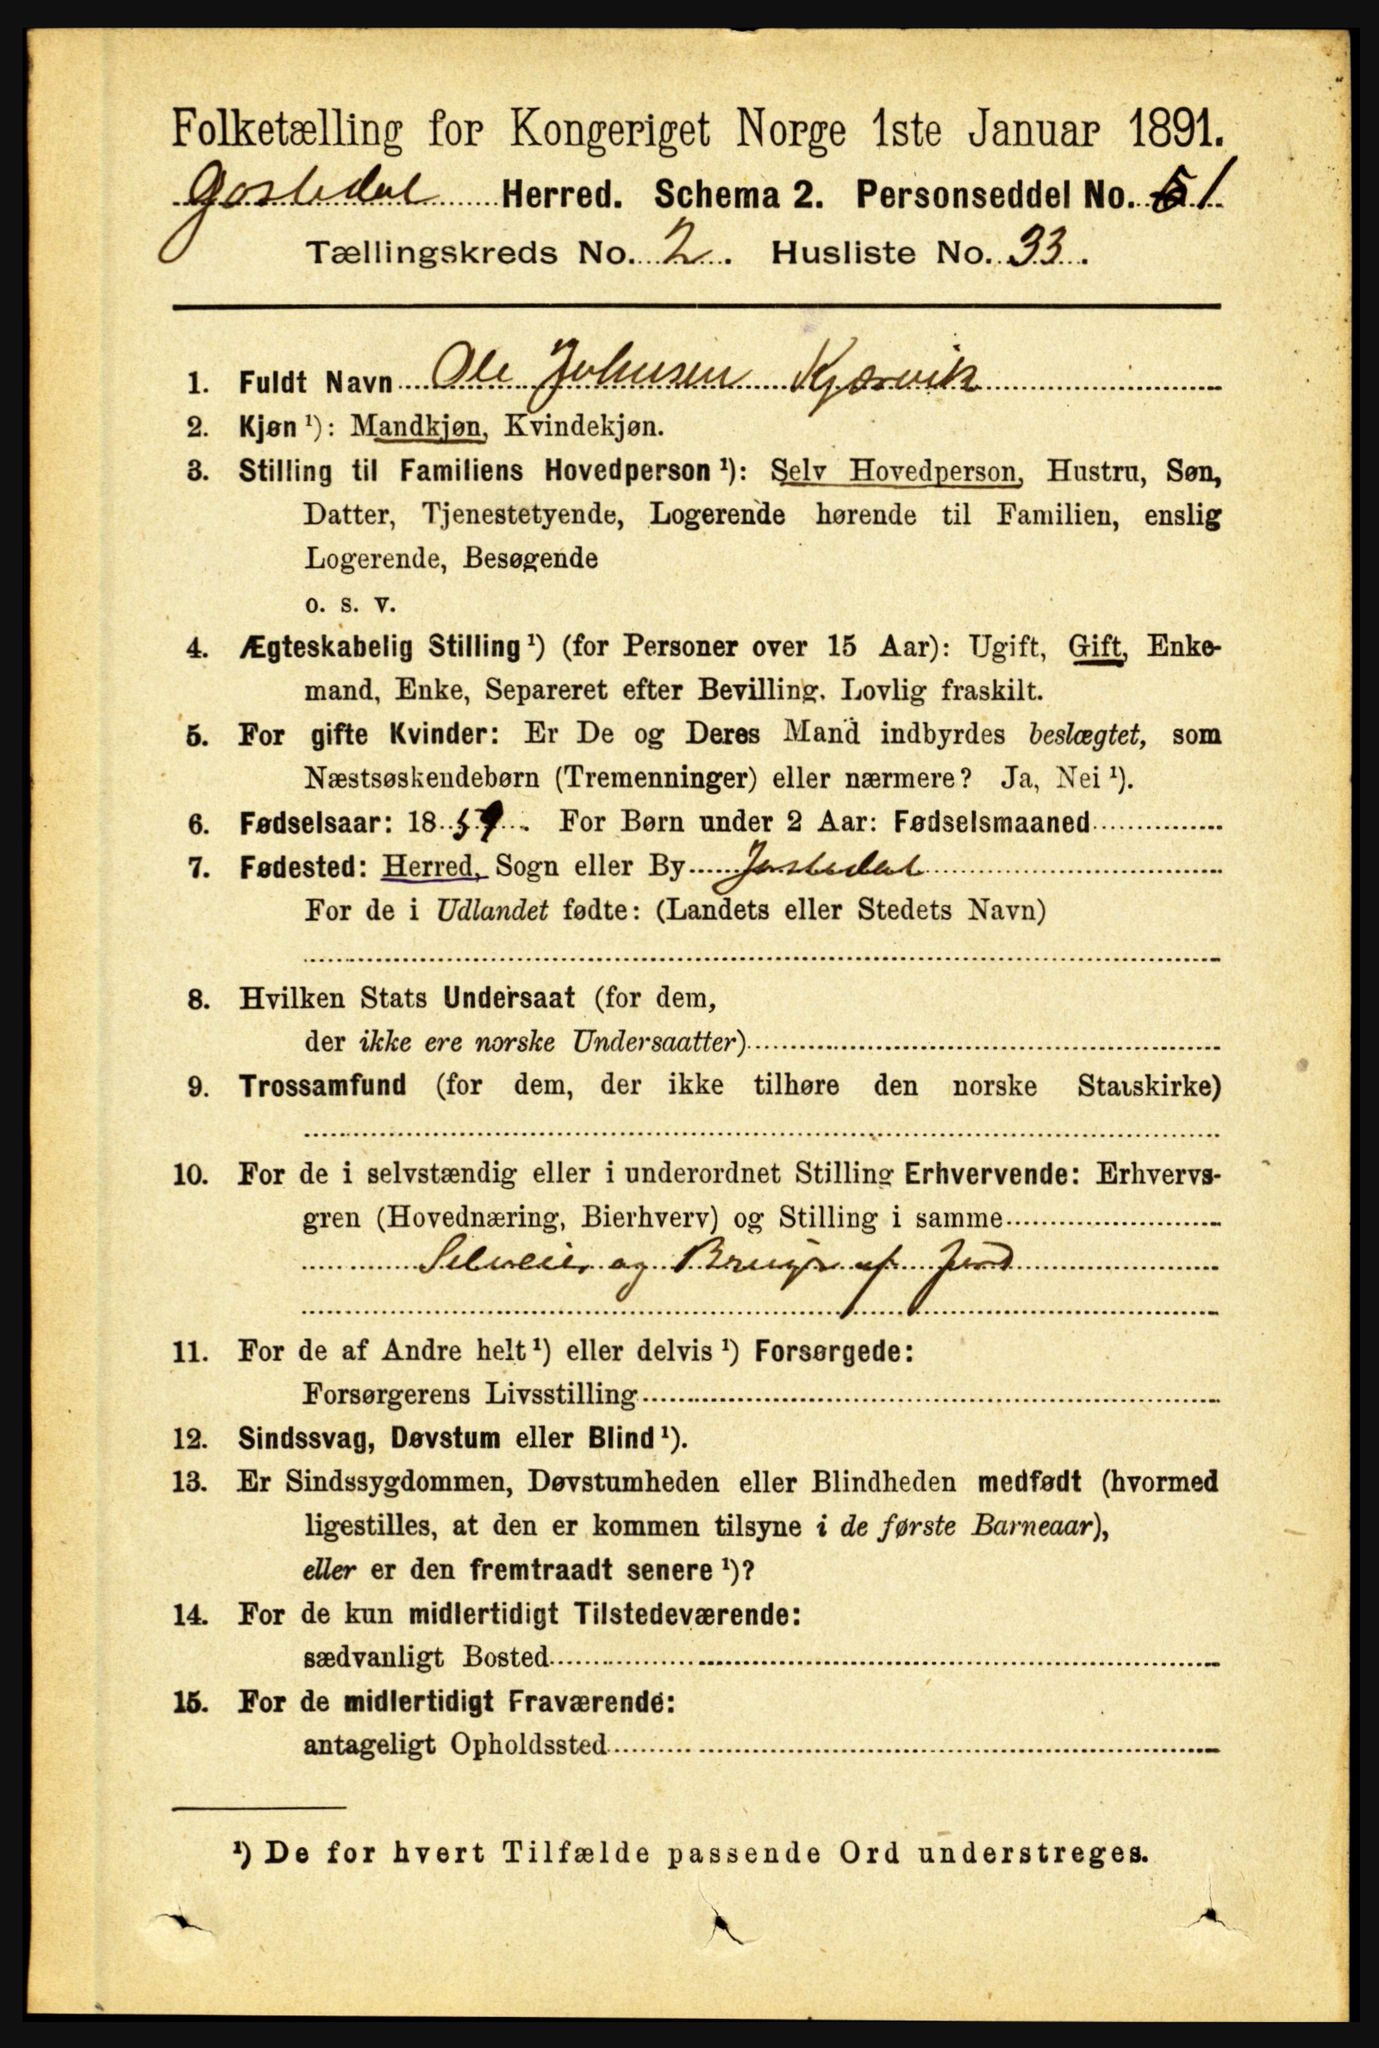 Folketælling for Kongeriget Norge 1ste Januar 1891.
Jostedal Herred. Schema 2. Personseddel No. 1
Tællingskreds No. 2. Husliste No. 33.
1. Fuldt Navn Ole Johnsen Kjærvik
2. Kjøn ¹): Mandkjøn, Kvindekjøn.
3. Stilling til Familiens Hovedperson ¹): Selv Hovedperson, Hustru, Søn,
Datter, Tjenestetyende, Logerende hørende til Familien, enslig
Logerende, Besøgende
o. s. v.
4. Ægteskabelig Stilling ¹) (for Personer over 15 Aar): Ugift, Gift, Enke-
mand, Enke, Separeret efter Bevilling. Lovlig fraskilt.
5. For gifte Kvinder: Er De og Deres Mand indbyrdes beslægtet, som
Næstsøskendebørn (Tremenninger) eller nærmere? Ja, Nei ¹).
6. Fødselsaar: 1859. For Børn under 2 Aar: Fødselsmaaned
7. Fødested: Herred, Sogn eller By Jostedal
For de i Udlandet fødte: (Landets eller Stedets Navn)
8. Hvilken Stats Undersaat (for dem,
der ikke ere norske Undersaatter)
9. Trossamfund (for dem, der ikke tilhøre den norske Statskirke)
10. For de i selvstændig eller i underordnet Stilling Erhvervende: Erhvervs-
gren (Hovednæring, Bierhverv) og Stilling i samme
Selveier og Bruger af Jord
11. For de af Andre helt ¹) eller delvis ¹) Forsørgede:
Forsørgerens Livsstilling
12. Sindssvag, Døvstum eller Blind ¹).
13. Er Sindssygdommen, Døvstumheden eller Blindheden medfødt (hvormed
ligestilles, at den er kommen tilsyne i de første Barneaar),
eller er den fremtraadt senere ¹)?
14. For de kun midlertidigt Tilstedeværende:
sædvanligt Bosted
15. For de midlertidigt Fraværende:
antageligt Opholdssted
¹) De for hvert Tilfælde passende Ord understreges.